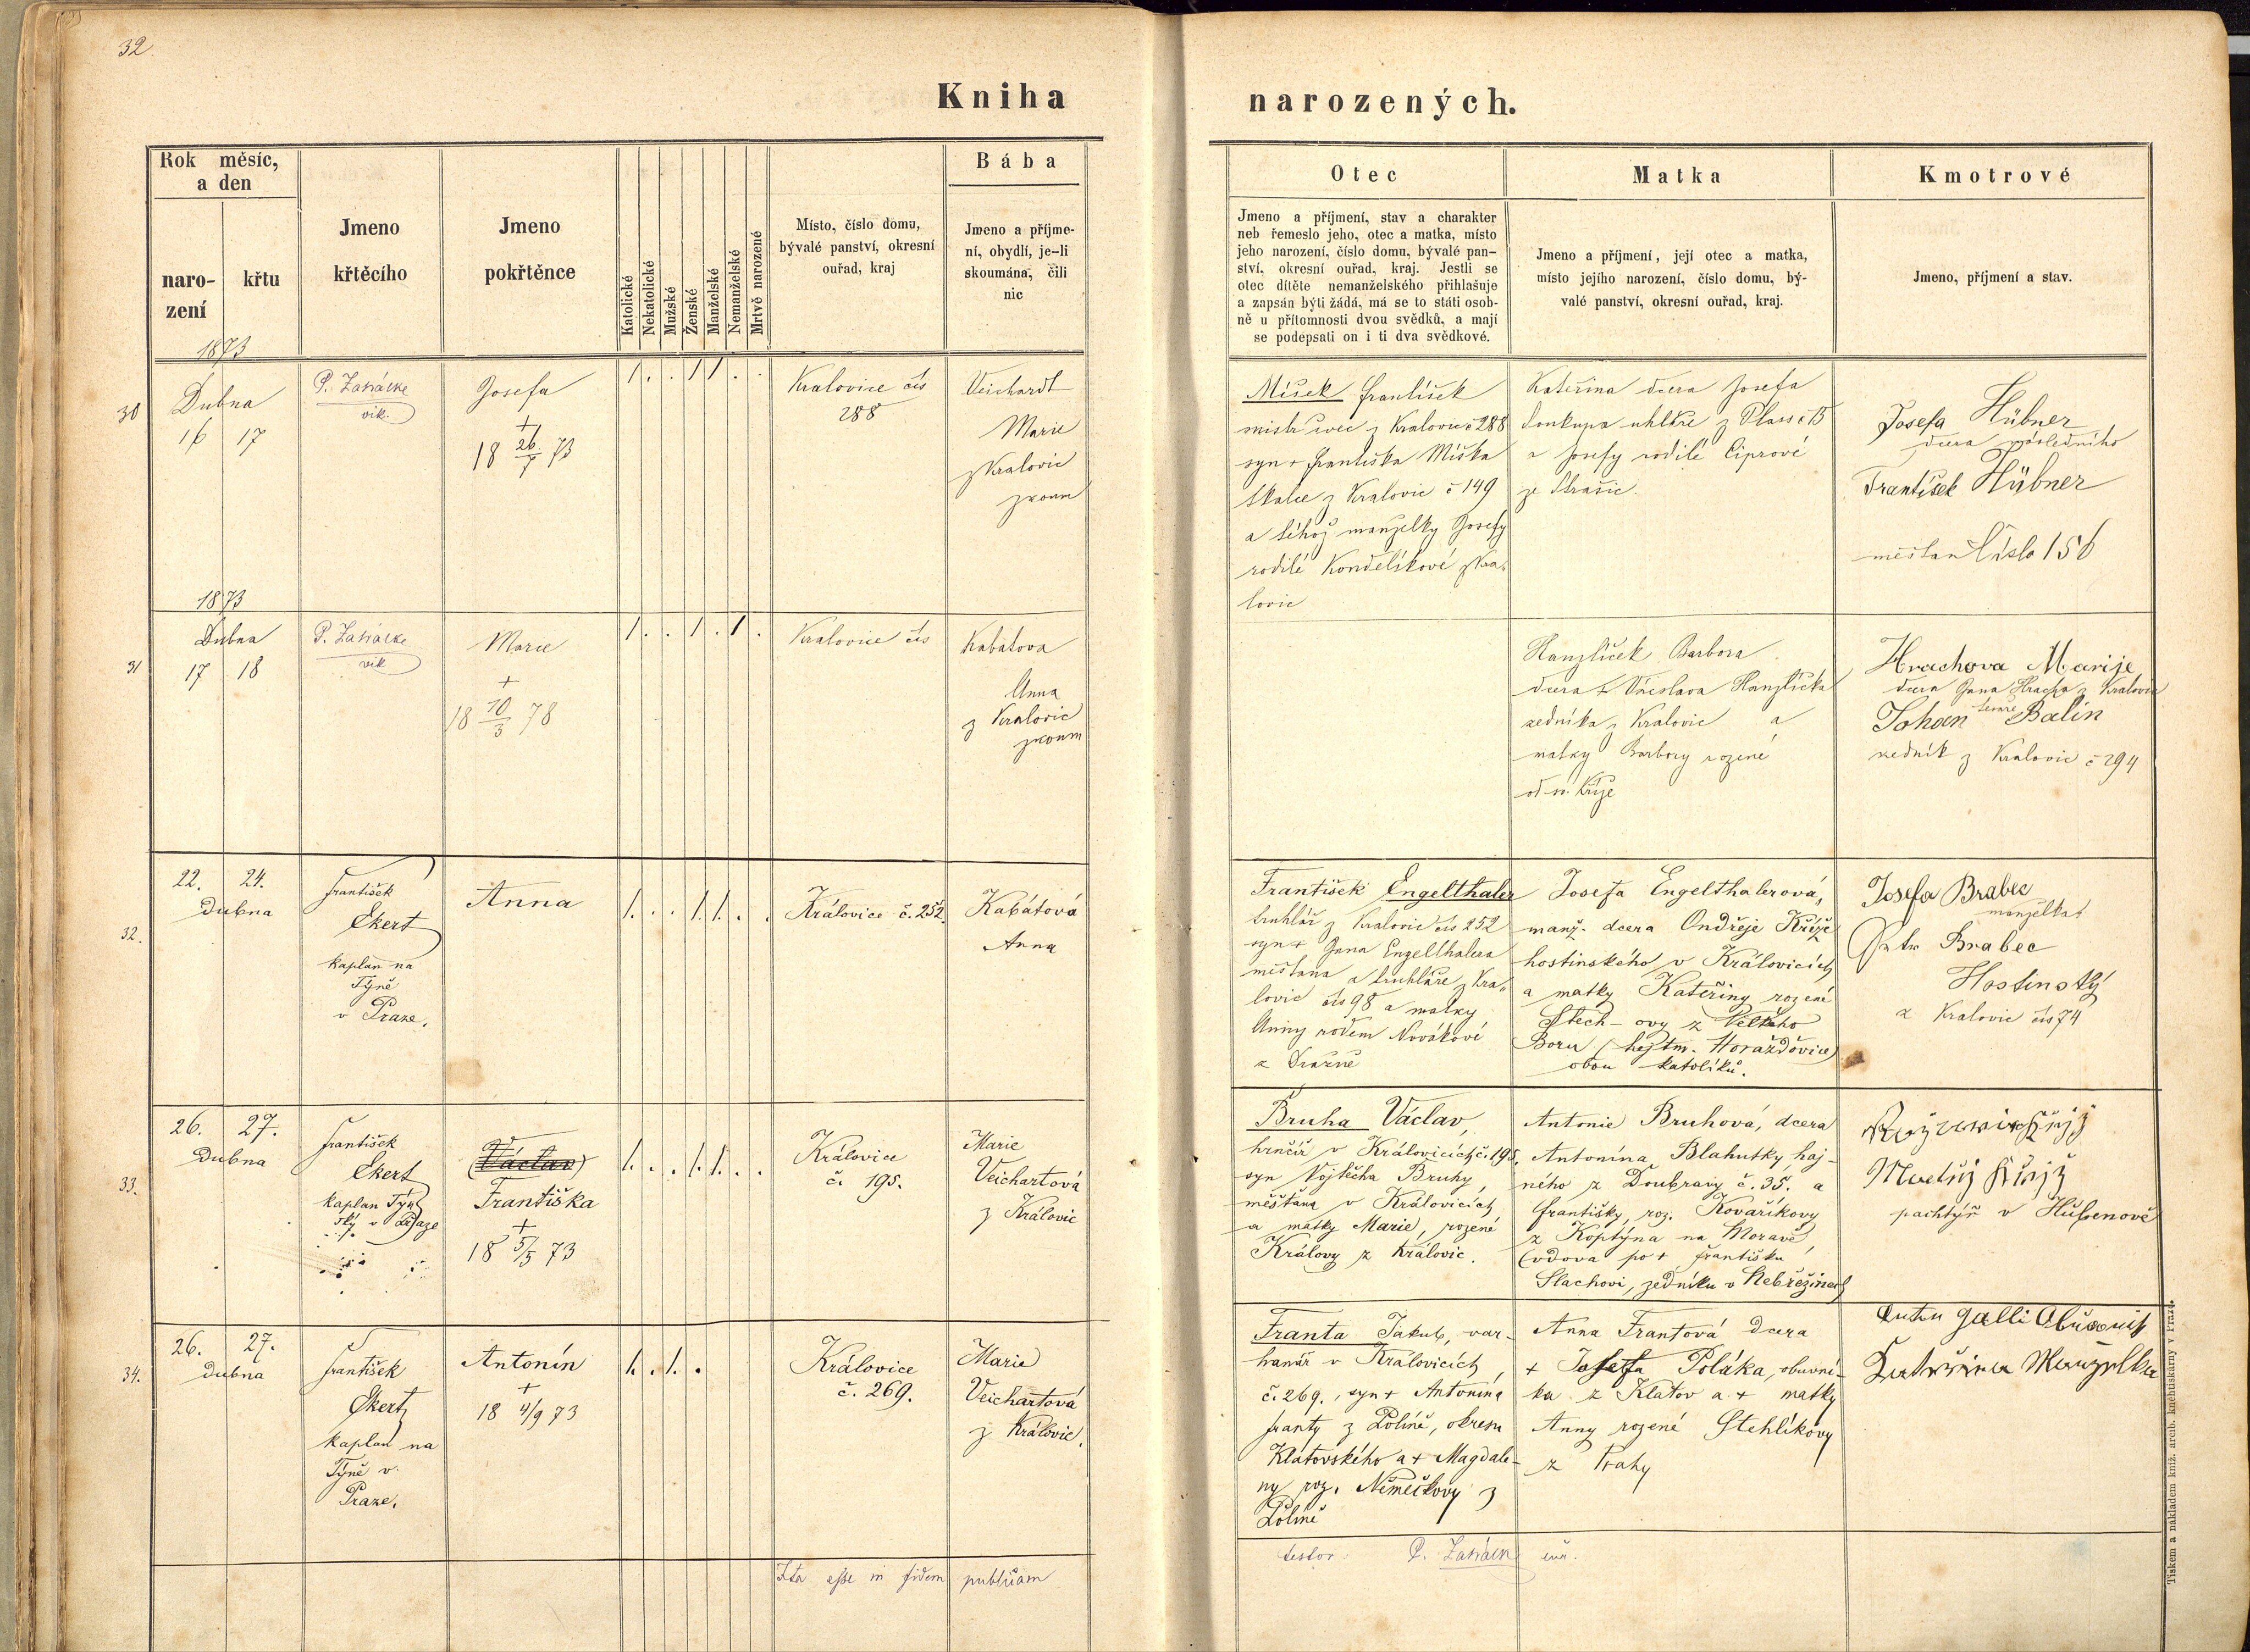 32
Kniha
narozených.
Rok měsíc,
a den
naro-
zení
křtu
Jmeno
křtěcího
Jmeno
pokřtěnce
Katolické
Nekatolické
Mužské
Ženské
Manželské
Nemanželské
Mrtvě narozené
Místo, číslo domu,
bývalé panství, okresní
ouřad, kraj
Bába
Jmeno a příjme-
ní, obydlí, je-li
skoumána, čili
nic
Otec
Jmeno a příjmení, stav a charakter
neb řemeslo jeho, otec a matka, místo
jeho narození, číslo domu, bývalé pan-
ství, okresní ouřad, kraj. Jestli se
otec dítěte nemanželského přihlašuje
a zapsán býti žádá, má se to státi osob-
ně u přítomnosti dvou svědků, a mají
se podepsati on i ti dva svědkové.
Matka
Jmeno a příjmení, její otec a matka,
místo jejího narození, číslo domu, bý-
valé panství, okresní ouřad, kraj.
Kmotrové
Jmeno, příjmení a stav.
1873
30
Dubna
16 17
vik.
Josefa
+
18 26/7 73
1 . . 1 1 . .
Kralovice čís
288
Veichardt
Marie
z Kralovic
zkoum
Míšek František
mistr švec z Kralovic č 288
syn + Františka Míška
tkalce z Kralovic č 149
a téhož manželky Josefy
rodilé Kondelíkové z Kra-
lovic
Kateřina dcera Josefa
Soukupa uhlíře z Plass č 15
a Josefy rodilé Ciprové
ze Strašic.
Josefa Hübner
dcera posledního
František Hübner
měšťan číslo 156
1873
31
Dubna
17 18
vik
Marie
+
18 10/3 78
1 . . 1 . 1 .
Kralovice čís
Kabátova
Anna
z Kralovic
zkoum
Hanzlíček Barbora
dcera + Hanzlíčka
zedníka z Kralovic a
matky Barbory rozené
od sv. Kříže
Hrachova Marije
dcera Jana Hracha z Kralovic
Johan Balín
zedník z Kralovic č 294
32.
22. 24.
Dubna
František
Ekert
kaplan na
Týně
v Praze.
Anna
1. . . 1. 1. . .
Královice č. 252.
Kabátová
Anna
František Engelthaler
truhlář z Kralovic čís 252
syn + Jana Engelthalera
měšťana a truhláře z Kra-
lovic čís 98 a matky
Anny rodem Novákové
z Dražně
Josefa Engelthalerová,
manž. dcera Ondřeje Kříže
hostinského v Královicích
a matky Kateřiny rozené
Stech-ovy z Velkého
Boru (hejtm. Horažďovice)
obou katolíků.
Josefa Brabec
manželka
Petr Brabec
Hostinský
z Kralovic čís 74
33.
26. 27.
Dubna
František
Ekert
kaplan Týn-
ský v Praze
(Václav)
Františka
+
18 5/5 73
1. . . 1. 1. . .
Královice
č. 195.
Marie
Veichartová
z Královic
Bruha Václav,
hrnčíř v Královicích č. 195,
syn Vojtěcha Bruhy,
měšťana v Královicích
a matky Marie, rozené
Královy z Královic.
Antonie Bruhová, dcera
Antonína Blahutky haj-
ného z Doubravy č. 35. a
Františky, roz. Kovaříkovy
z Koptýna na Moravě,
(vdova po + Františku
Slachovi, zedníku v Nebřežinech)
pachtýř v
34.
26. 27.
Dubna
František
Ekert
kaplan na
Týně v
Praze.
Antonín
+
18 4/9 73
1. . 1. .
Královice
č. 269.
Marie
Veichartová
z Královic.
Franta Jakub, var-
hanář v Královicích,
č. 269., syn + Antonína
Franty z Polině, okresu
Klatovského a + Magdale-
ny roz. Němečkovy z
Polině
Anna Frantová dcera
+ Josefa Poláka, obuvní-
ka z Klatov a + matky
Anny rozené Stehlíkovy
z Prahy
Manzelka
Ita esse in fidem publicam
testor:
Tiskem a nákladem kníž. arcib. knihtiskárny v Praze.